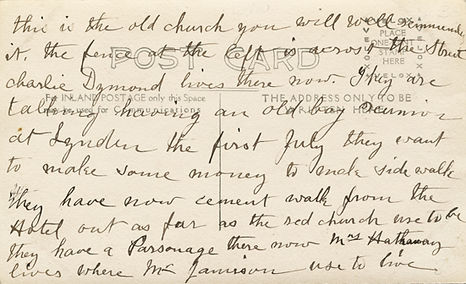 this is the old church you will well remember
it. the fence at the left is across the Street
charlie Dymond lives there now. They are
talking having an old boy reunion
at Lynden the first July they want
to make some money to make side walk
they have now cement walk from the
Hotel out as far as the red church use to be
they have a Parsonage there now Mrs Hathaway
lives where Mr Jamison use to live
POST CARD
For INLAND POSTAGE only this Space
may be used for COMMUNICATIONS
THE ADDRESS ONLY TO BE
WRITTEN HERE
PLACE
ONE CENT
STAMP
HERE
VELOX